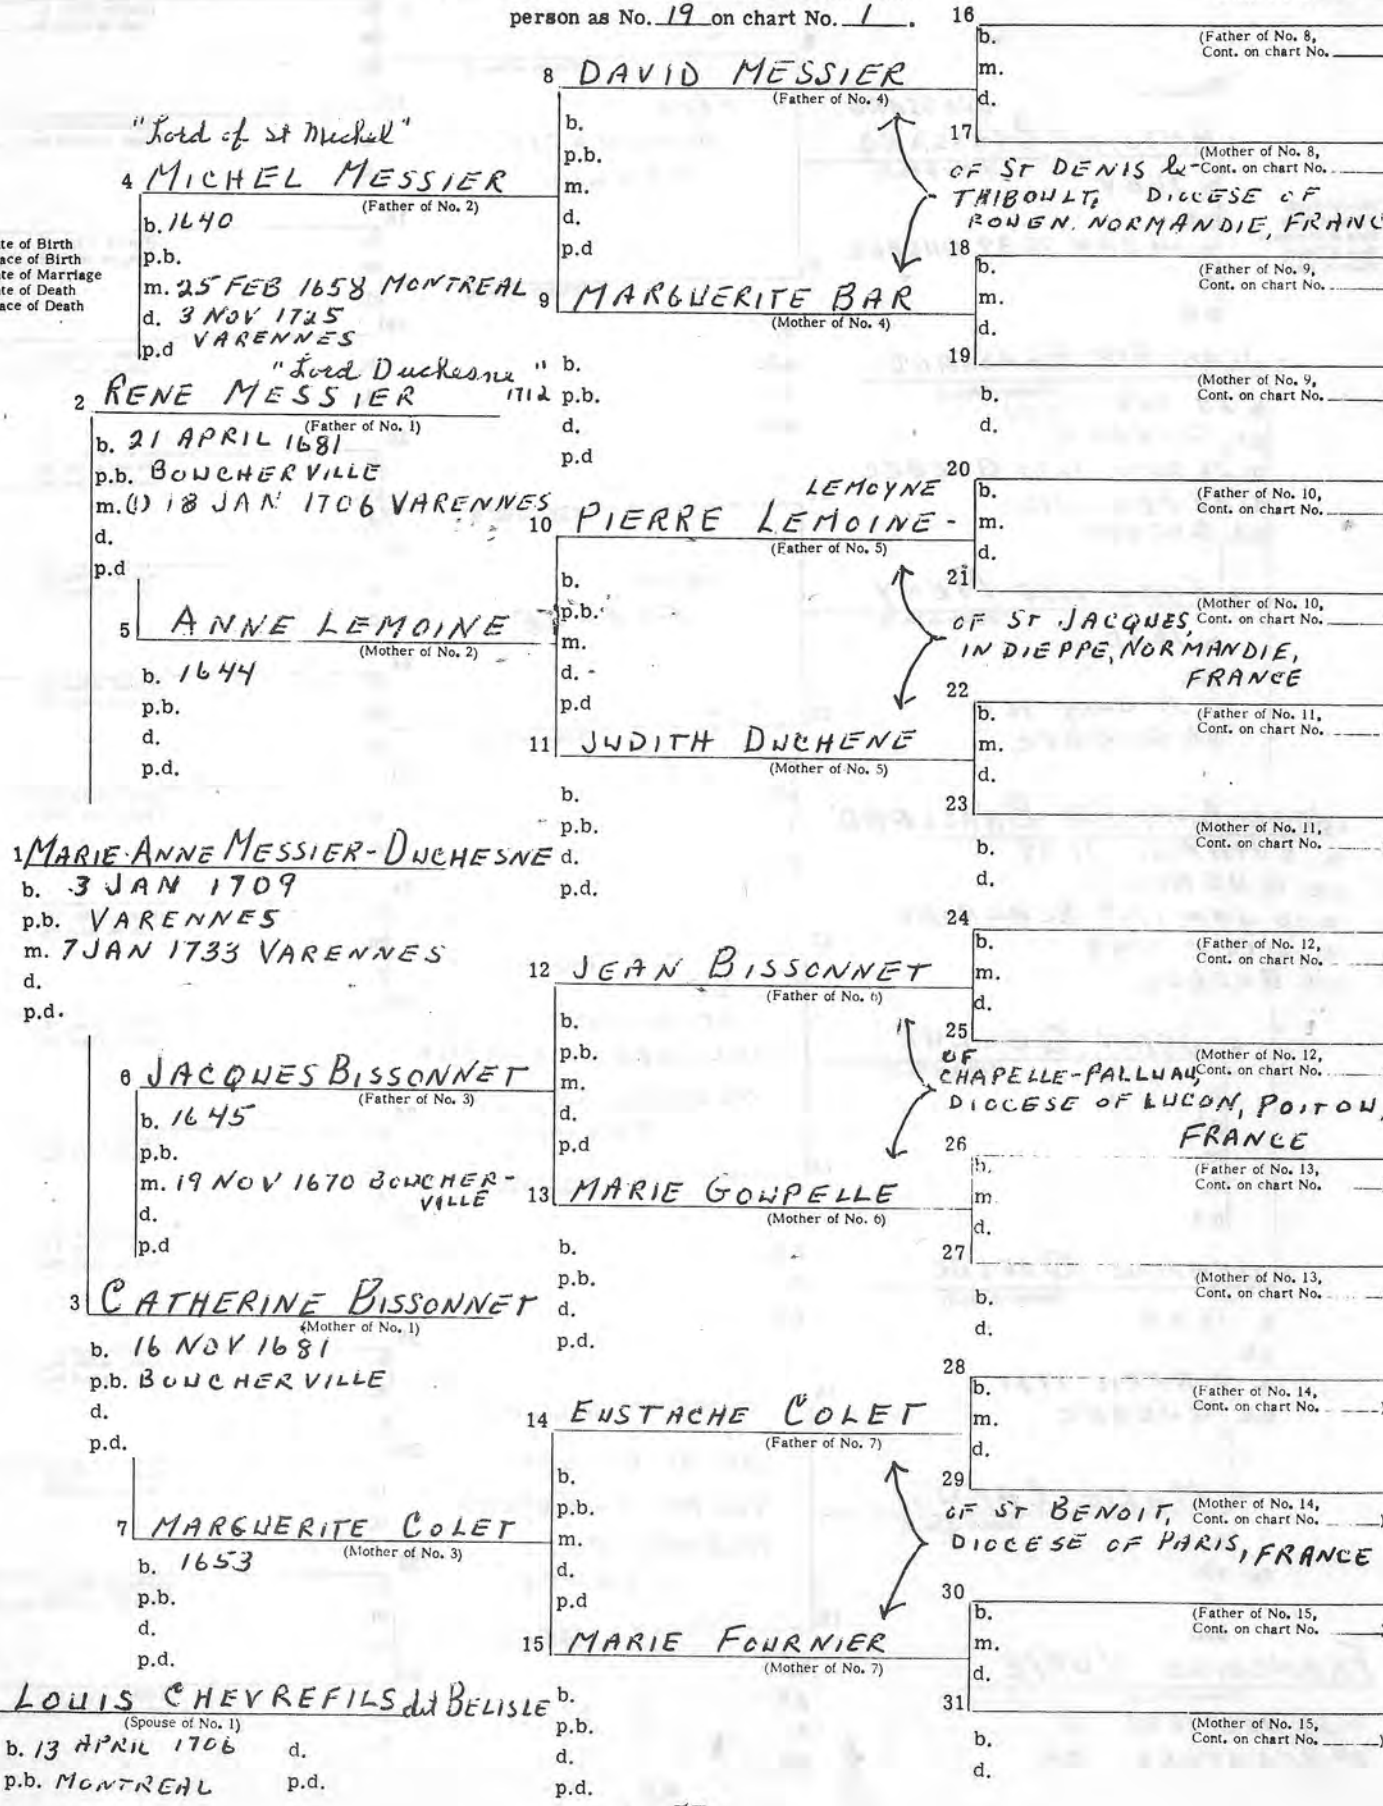 person as No. 19 on chart No. 1.
te of Birth
ace of Birth
te of Marriage
te of Death
ace of Death
1 MARIE-ANNE MESSIER-DUCHESNE
b. 3 JAN 1709
p.b. VARENNES
m. 7 JAN 1733 VARENNES
d.
p.d.
"Lord Duchesne" 1712
2 RENE MESSIER
(Father of No. 1)
b. 21 APRIL 1681
p.b. BOUCHERVILLE
m.(1) 18 JAN 1706 VARENNES
d.
p.d
3 CATHERINE BISSONNET
(Mother of No. 1)
b. 16 NOV 1681
p.b. BOUCHERVILLE
d.
p.d.
LOUIS CHEVREFILS dit BELISLE
(Spouse of No. 1)
b. 13 APRIL 1706 d.
p.b. MONTREAL p.d.
"Lord of St Michel"
4 MICHEL MESSIER
(Father of No. 2)
b. 1640
p.b.
m. 25 FEB 1658 MONTREAL
d. 3 NOV 1725
p.d VARENNES
5 ANNE LEMOINE
(Mother of No. 2)
b. 1644
p.b.
d.
p.d.
6 JACQUES BISSONNET
(Father of No. 3)
b. 1645
p.b.
m. 19 NOV 1670 BOUCHER-
VILLE
d.
p.d
7 MARGUERITE COLET
(Mother of No. 3)
b. 1653
p.b.
d.
p.d.
8 DAVID MESSIER
(Father of No. 4)
b.
p.b.
m.
d.
p.d
9 MARGUERITE BAR
(Mother of No. 4)
b.
p.b.
d.
p.d
LEMOYNE
10 PIERRE LEMOINE-
(Father of No. 5)
b.
p.b.
m.
d.
p.d
11 JUDITH DUCHENE
(Mother of No. 5)
b.
p.b.
d.
p.d.
12 JEAN BISSONNET
(Father of No. 6)
b.
p.b.
m.
d.
p.d
13 MARIE GOUPELLE
(Mother of No. 6)
b.
p.b.
d.
p.d.
14 EUSTACHE COLET
(Father of No. 7)
b.
p.b.
m.
d.
p.d
15 MARIE FOURNIER
(Mother of No. 7)
b.
p.b.
d.
p.d.
16
b. (Father of No. 8,
m. Cont. on chart No.
d.
17
(Mother of No. 8,
Cont. on chart No.
OF ST DENIS &
THIBOULT, DIOCESE OF
ROUEN. NORMANDIE, FRANC
18
b. (Father of No. 9,
m. Cont. on chart No.
d.
19
(Mother of No. 9,
b. Cont. on chart No.
d.
20
b. (Father of No. 10,
m. Cont. on chart No.
d.
21
(Mother of No. 10,
Cont. on chart No.
OF ST JACQUES,
IN DIEPPE, NORMANDIE,
FRANCE
22
b. (Father of No. 11,
m. Cont. on chart No.
d.
23
(Mother of No. 11,
b. Cont. on chart No.
d.
24
b. (Father of No. 12,
m. Cont. on chart No.
d.
25
(Mother of No. 12,
Cont. on chart No.
OF
CHAPELLE-PALLUAU,
DIOCESE OF LUCON, POITOU,
FRANCE
26
b. (Father of No. 13,
m. Cont. on chart No.
d.
27
(Mother of No. 13,
b. Cont. on chart No.
d.
28
b. (Father of No. 14,
m. Cont. on chart No. )
d.
29
(Mother of No. 14,
Cont. on chart No. )
OF ST BENOIT,
DIOCESE OF PARIS, FRANCE
30
b. (Father of No. 15,
m. Cont. on chart No.
d.
31
(Mother of No. 15,
b. Cont. on chart No. )
d.